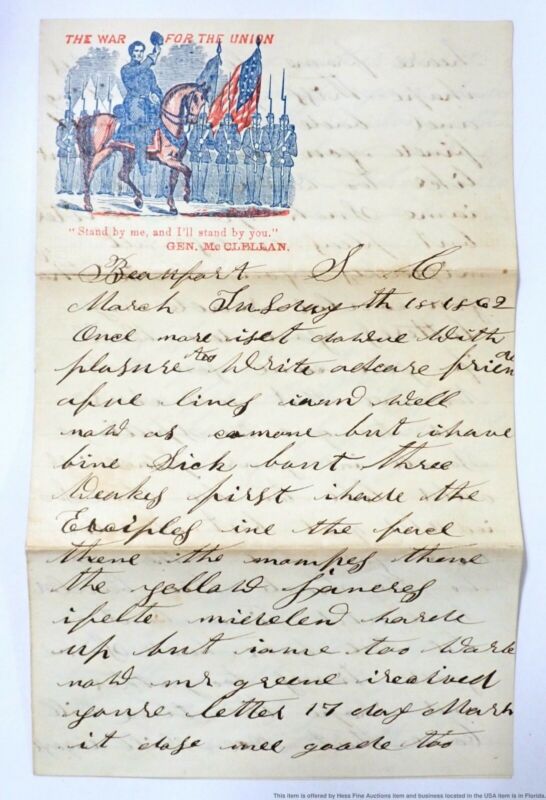 THE WAR FOR THE UNION
"Stand by me, and I'll stand by you."
GEN. McCLELLAN.
Beaufort S C
March Tusday th 18 1862
Once more iset downe with
plasure too Write adeare friend
afue lines iam Well
now as comone but ihave
bine Sick bout three
Weakes first ihade the
Ersiples ine the face
thene the mompes thene
the yellow janeres
ifelte harde
up but iame too Warke
now mr greene ireceived
youre letter 17 day March
it dose mee goode too
This item is offered by Hess Fine Auctions item and business located in the USA item is in Florida.